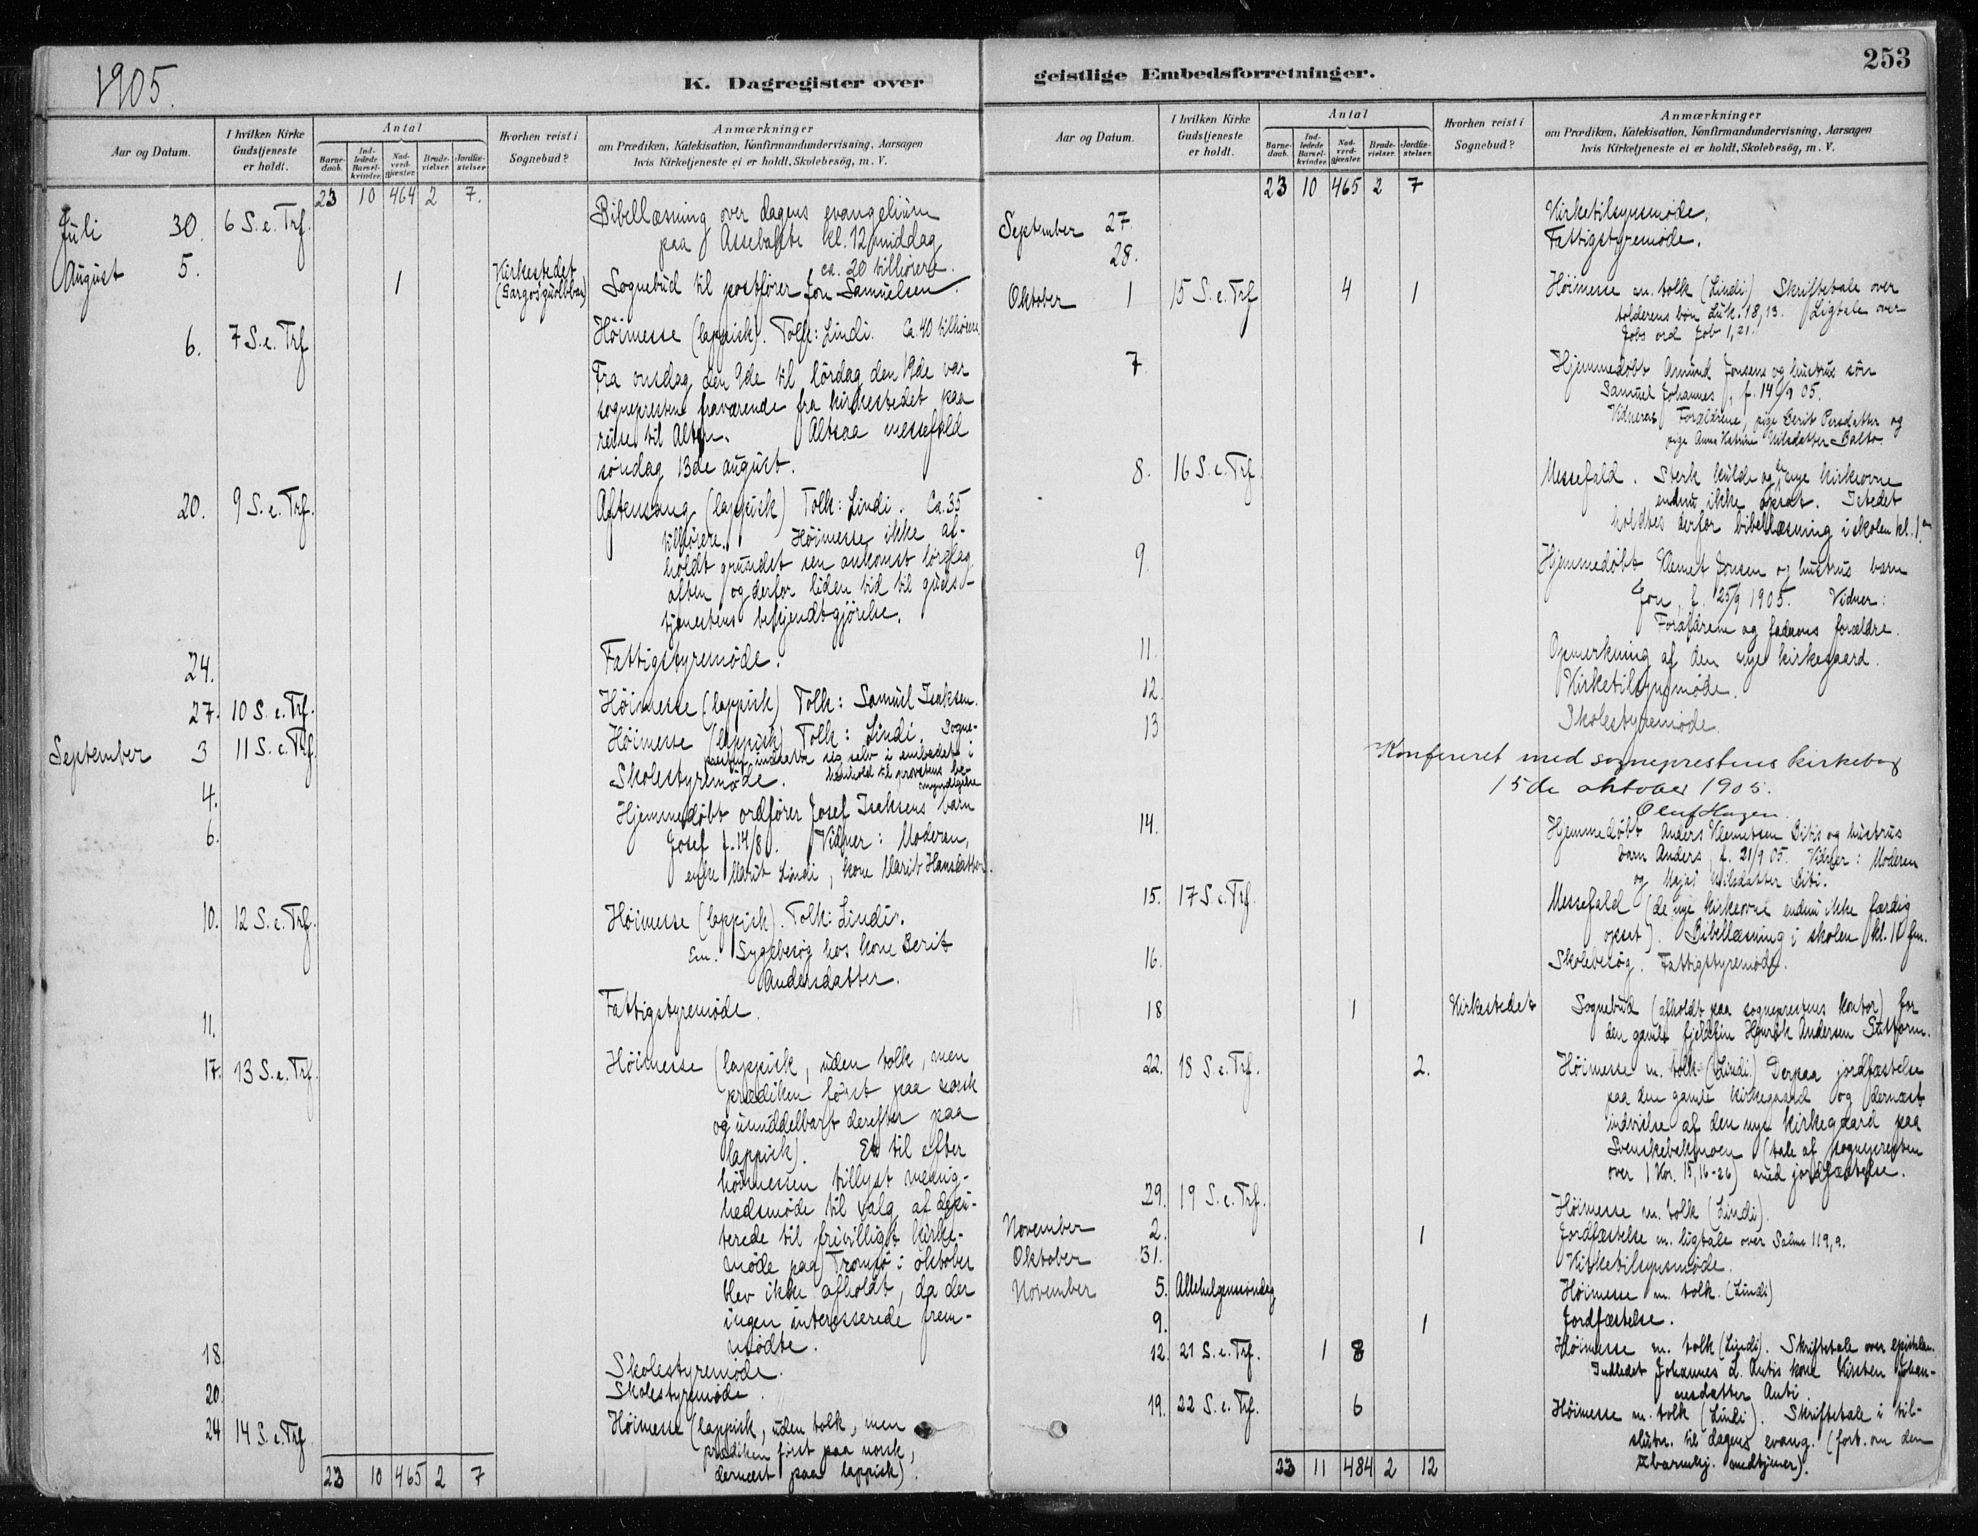 1905.
K. Dagregister over
Aar og Datum.
I hvilken Kirke Gudstjeneste er holdt.
Antal
Barnedaab.
Indledede Barselkvinder.
Nadverdgjæster.
Brudevielser.
Jordfæstelser
Hvorhen reist i Sognebud?
Anmærkninger
om Prædiken, Katekisation, Konfirmandundervisning, Aarsagen
hvis Kirketjeneste ei er holdt, Skolebesög, m. V.
23 10 464 2 7.
Juli 30. 6 S. e. Trf. Bibellæsning over dagens evangelium
paa Assebakte kl. 12 middag
ca. 20 tilhörere.
August 5. 1 Kirkestedet Sognebud til postförer Jon Samuelsen
6. 7 S. e. Trf Höimesse (lappisk). Tolk: Lindi. Ca. 40 tilhörere
Fra onsdag den 9de til lördag den 19de var
sognepresten fraværende fra kirkestedet paa
reise til Alten. Altsaa messefald
söndag 13de august.
20. 9 S. e. Trf. Aftensang (lappisk) Tolk: Lindi. Ca. 35
tilhörere. Höimesse ikke af-
holdt grundet sen ankomst lördag
aften og derfor liden tid til guds-
tjenestens bekjendtgjörelse.
24. Fattigstyremöde.
27. 10 S. e. Trf. Höimesse (lappisk) Tolk: Samuel Isaksen.
September 3 11 S. e. Trf. Höimesse (lappisk) Tolk: Lindi. Sogne-
presten indsatte sig selv i embedet i
henhold til provstens be-
myndigelse
4. Skolestyremöde.
6. Hjemmedöbt ordförer Josef Isaksens barn
Josef f. 14/8. Vidner: Moderen,
enke Marit Lindi, kone Marit Hansdatter.
10. 12 S. e. Trf. Höimesse (lappisk). Tolk: Lindi.
Em. Sygebesög hos kone Berit
Andersdatter.
11. Fattigstyremöde.
17. 13 S. e. Trf. Höimesse (lappisk, uden tolk, men
prædiken först paa norsk
og umiddelbart derefter paa
lappisk). Et til efter
höimessen tillyst menig-
hedsmöde til valg af depu-
terede til frivilligt kirke-
möde paa Tromsö i oktober
blev ikke afholdt, da der
ingen interesserede frem-
mödte.
18. Skolestyremöde.
20. Skolestyremöde.
24 14 S. e. Trf Höimesse (lappisk, uden tolk, men
prædiken först paa norsk,
dernæst paa lappisk).
23 10 465 2 7
253
geistlige Embedsforretninger.
Aar og Datum.
I hvilken Kirke Gudstjeneste er holdt.
Antal
Barnedaab.
Indledede Barselkvinder.
Nadverdgjæster.
Brudevielser.
Jordfæstelser.
Hvorhen reist i Sognebud?
Anmærkninger
om Prædiken, Katekisation, Konfirmandundervisning, Aarsagen
hvis Kirketjeneste ei er holdt, Skolebesög, m. V.
23 10 465 2 7
September 27. Kirketilsynsmöde.
28. Fattigstyremöde.
Oktober 1 15 S. e. Trf 4 1 Höimesse m. tolk (Lindi) Skriftetale over
tolderens bön Luk. 18, 13. Ligtale over
Jobs ord Job 1, 21.
7 Hjemmedöbt Amund Jonsens og hustrus sön
Samuel Johannes, f. 14/9 05.
Vidner: Forældrene, pige Berit Persdatter og
pige Anna Katrine Nilsdatter Balto.
8. 16 S. e. Trf. Messefald. Sterk kulde og de nye kirkeovne
endnu ikke opsat. Istedet
holdtes derfor bibellæsning i skolen kl. 1
9. Hjemmedöbt Klemet Jonsen og hustrus barn
Jon, f. 25/9 1905. Vidner:
Forældrene og faderens forældre.
11. Opmerkning af den nye kirkegaard.
12. Kirketilsynsmöde.
13 Skolestyremöde.
Konfereret med sogneprestens kirkebog
15de oktober 1905.
Oluf Hagen.
14. Hjemmedöbt Anders Klemetsen Bitis og hustrus
barn Anders, f. 21/9 05. Vidner: Moderen
og Nilsdatter Biti.
15. 17 S. e. Trf. Messefald (de nye kirkeovne endnu ikke færdig
opsat). Bibellæsning i skolen kl. 11 fm.
16. Skolebesög. Fattigstyremöde.
18 1 Kirkestedet Sognebud (afholdt paa sogneprestens kontor) for
den gamle fjeldfin Henrik Andersen
22. 18 S. e. Trf. 2. Höimesse m. tolk (Lindi.) Derpaa jordfæstelse
paa den gamle kirkegaard og dernæst
indvielse af den nye kirkegaard paa
(tale af sognepresten
over 1 Kor. 15, 16-26) med jordfæstelse.
29. 19 S. e. Trf. Höimesse m. tolk (Lindi).
November 2. 1 Jordfæstelse m. ligtale over Salme 119, 9.
Oktober 31. Kirketilsynsmöde.
November 5. Allehelgenssöndag Höimesse m. tolk. (Lindi)
9. 1 Jordfæstelse.
12. 21 S. e. Trf. 1 8 Höimesse m. tolk (Lindi). Skriftetale over epistelen.
Indledet Johannes L. Antis kone Kirsten Johan-
nesdatter Anti.
19. 22 S. e. Trf. 6 Höimesse m. tolk (Lindi). Skriftetale i til-
slutn. til dagens evang. (fort. om den
ubarmhj. medtjener).
23 11 484 2 12